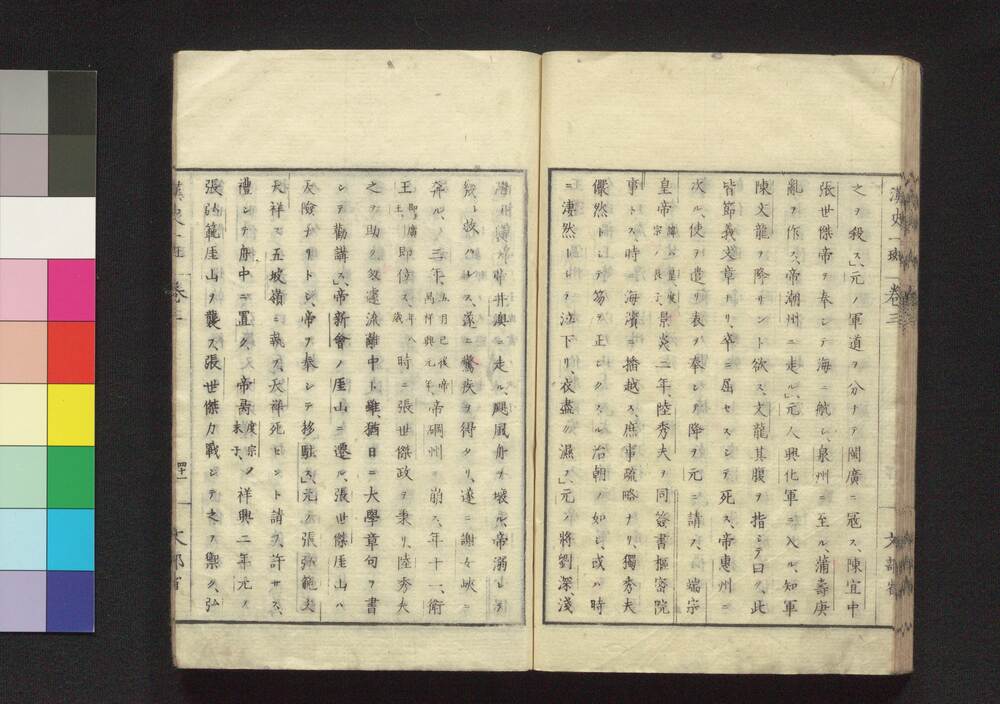 漢史一班 卷三 文部省
之ヲ殺ス、元ノ軍道ヲ分チテ閩廣ニ冦ス、陳宜中
張世傑帝ヲ奉シテ海ニ航シ、泉州ニ至ル、蒲壽庚
亂ヲ作ス、帝潮州ニ走ル、元人興化軍ニ入ル、知軍
陳文龍ヲ降サント欲ス、文龍其腹ヲ指シテ曰ク、此
皆節義文章ナリ、卒ニ屈セスシテ死ス、帝惠州ニ
次ル、使ヲ遣リ表ヲ奉シテ降ヲ元ニ請フ、端宗
皇帝 景炎二年、陸秀夫ヲ同簽書樞密院
事トス、時ニ海濱ニ播越ス、庶事疏略ナリ、獨秀夫
儼然トシテ笏ヲ正シクスル治朝ノ如シ、或ハ時
ニ淒然トシテ泣下リ、衣盡ク濕フ、元ノ將劉深淺
井澳ニ走ル、颶風舟ヲ壞ル、帝溺レテ
救ハレ、遂ニ驚疾ヲ得タリ、遂ニ謝女峽ニ
奔ル、三年、帝碙州ニ崩ス、年十一、衛
王 即位ス、年八歳 時ニ張世傑政ヲ秉リ、陸秀夫
之ヲ助ク、匆遽流離中ト雖、猶日ニ大學章句ヲ書
シテ勸講ス、帝新會ノ厓山ニ遷ル、張世傑厓山ハ
天險ナリトシ、帝ヲ奉シテ移駐ス、元ノ張弘範文
天祥ヲ五坡嶺ニ執フ、天祥死センﾄ請フ、許サス、
禮シテ舟中ニ置ク、帝昺 度宗ノ末子 祥興二年元ノ
張弘範厓山ヲ襲ス、張世傑力戰シテ之ヲ禦ク、弘